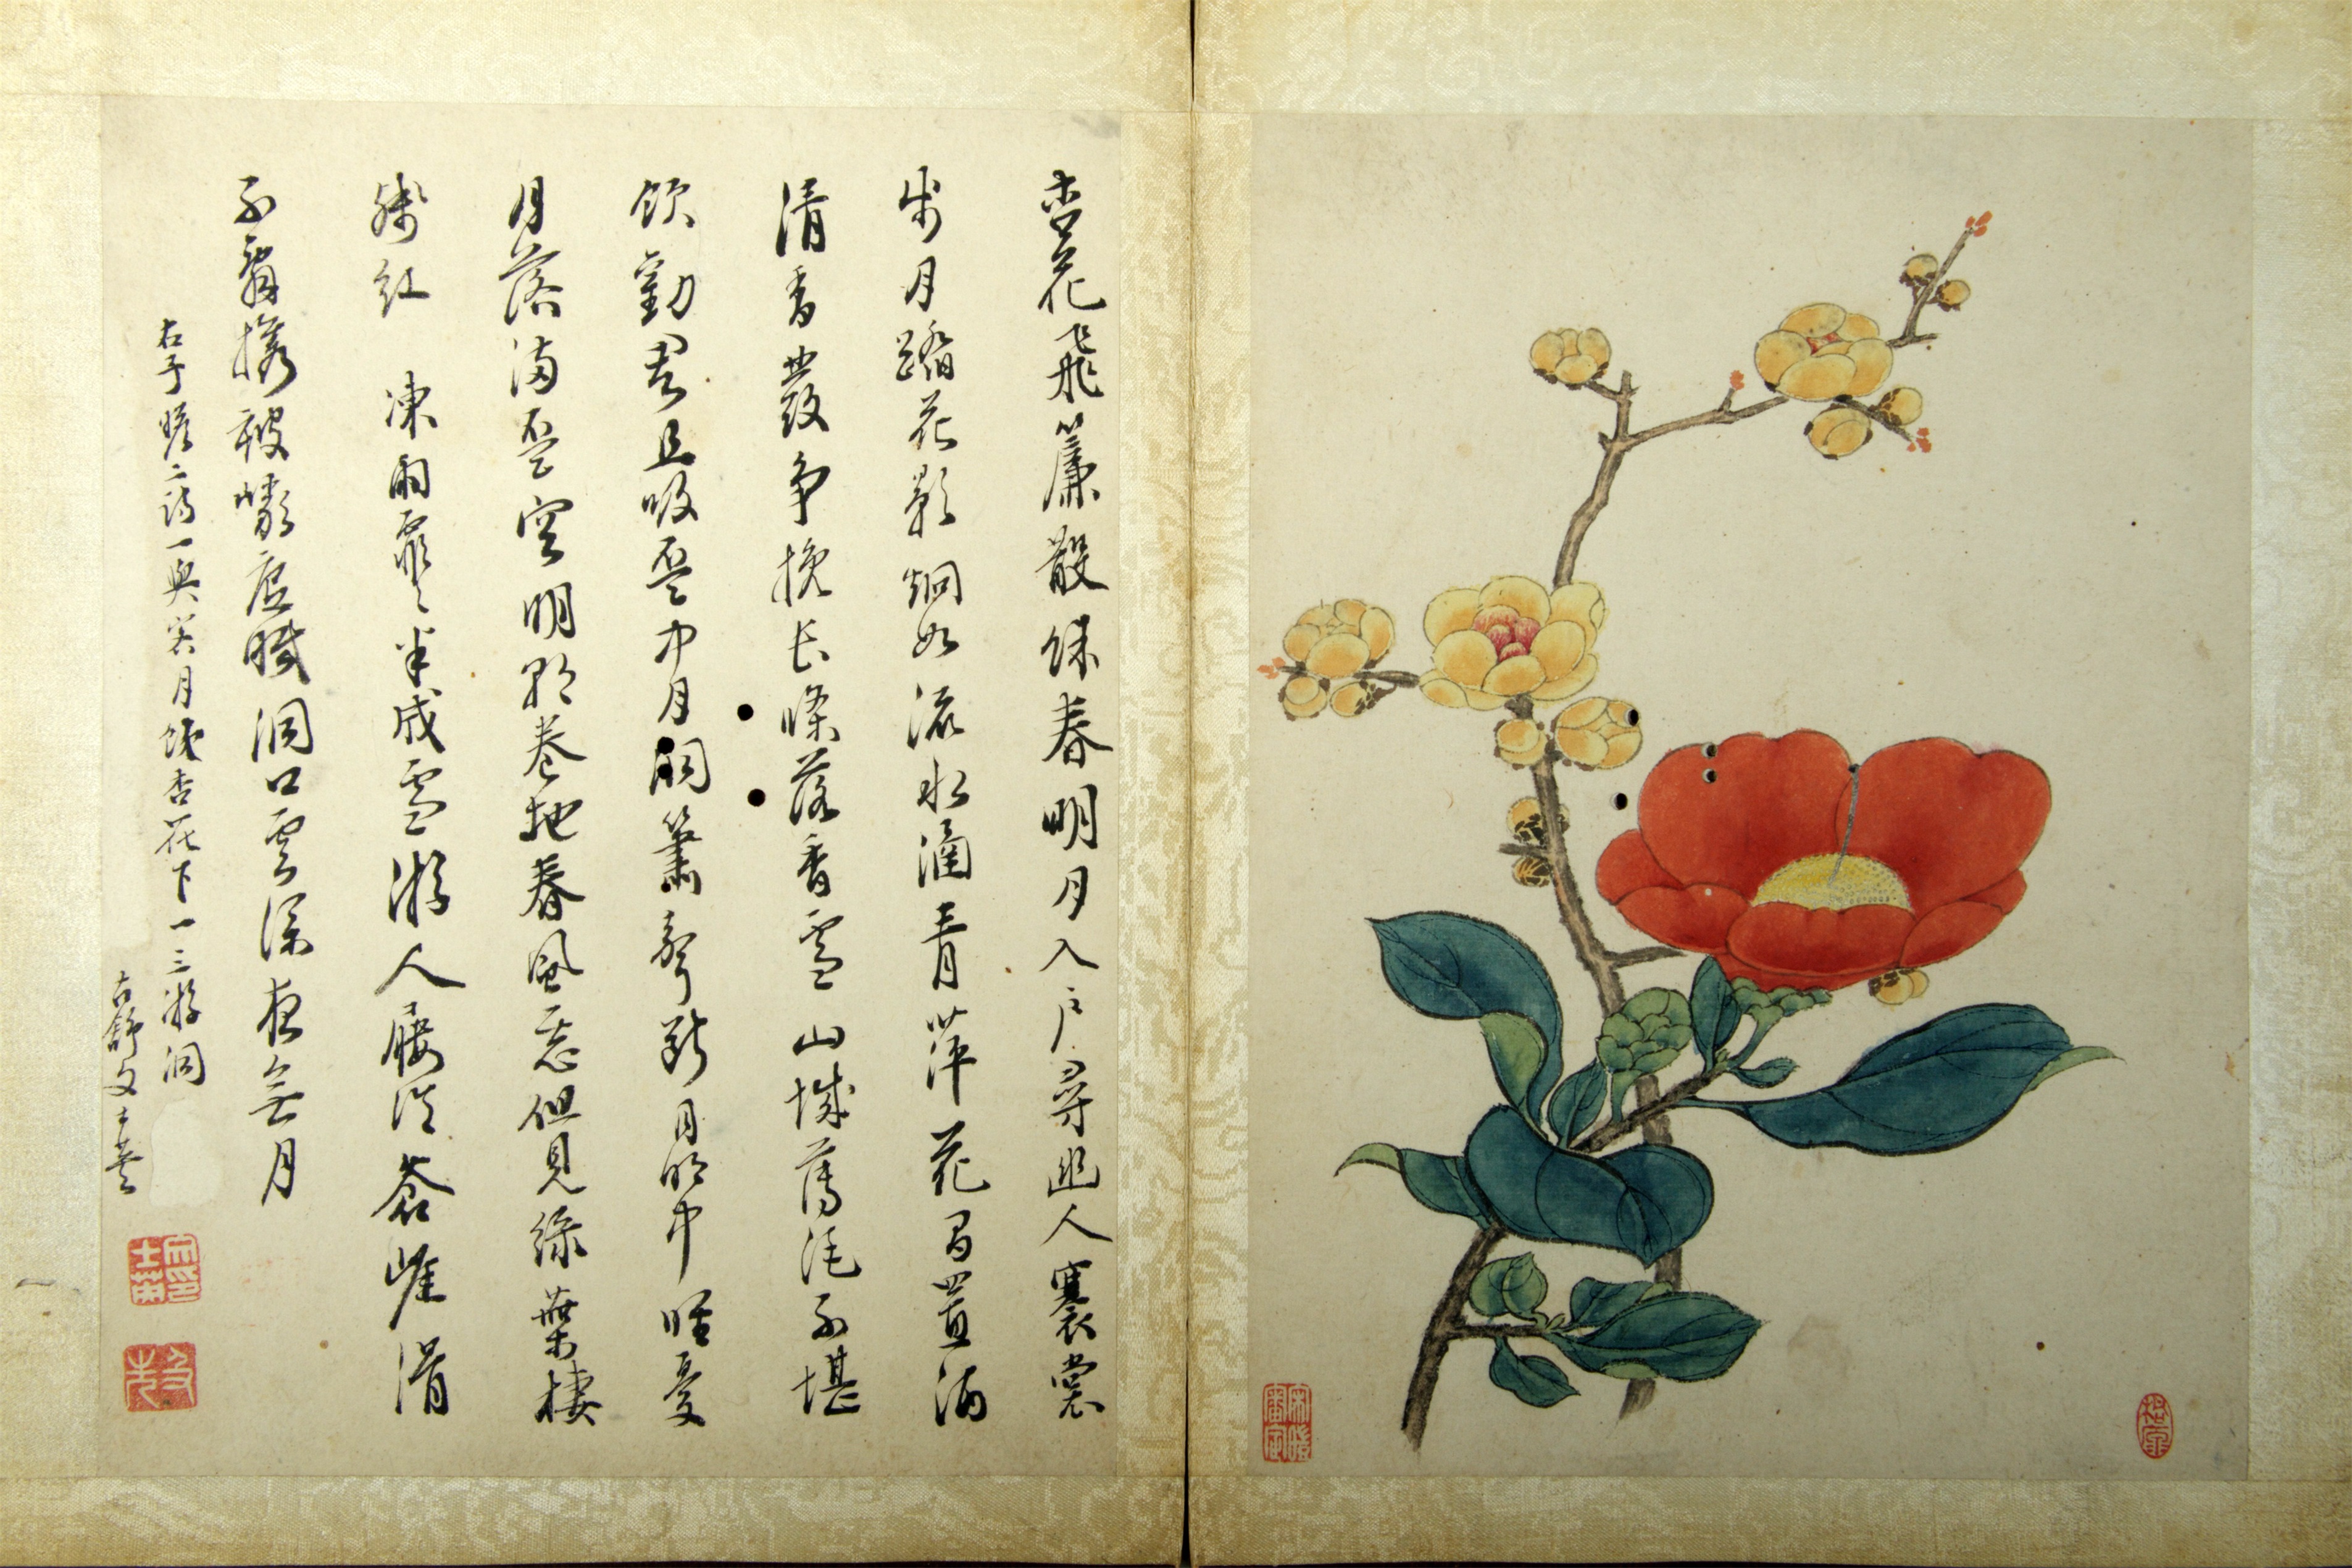 杏花飛簾散餘春明月入戶尋幽人褰裳
步月踏花影炯如流水涵青蘋花間置酒
清香發爭挽長條落香雪山城薄酒不堪
飲勸君且吸盃中月洞簫聲斷月明中唯憂
月落酒盃空明朝卷地春風惡但見綠葉棲
殘紅 凍雨霏霏半成雪游人屨冷蒼崖滑
不辭攜被巖底眠洞口雲深夜無月
右子瞻二詩一與客月夜飲杏花下一三游洞
古歙